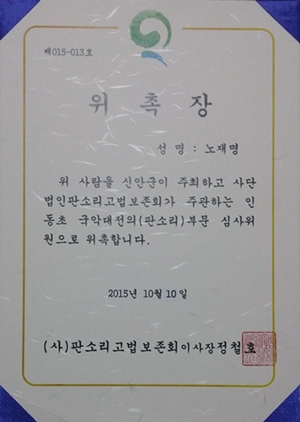 제015-013호
위 촉 장
성 명 : 노재명
위 사람을 신안군이 주최하고 사단
법인판소리고법보존회가 주관하는 인
동초 국악대전의(판소리)부문 심사위
원으로 위촉합니다.
2015년 10월 10일
(사)판소리고법보존회이사장정철호